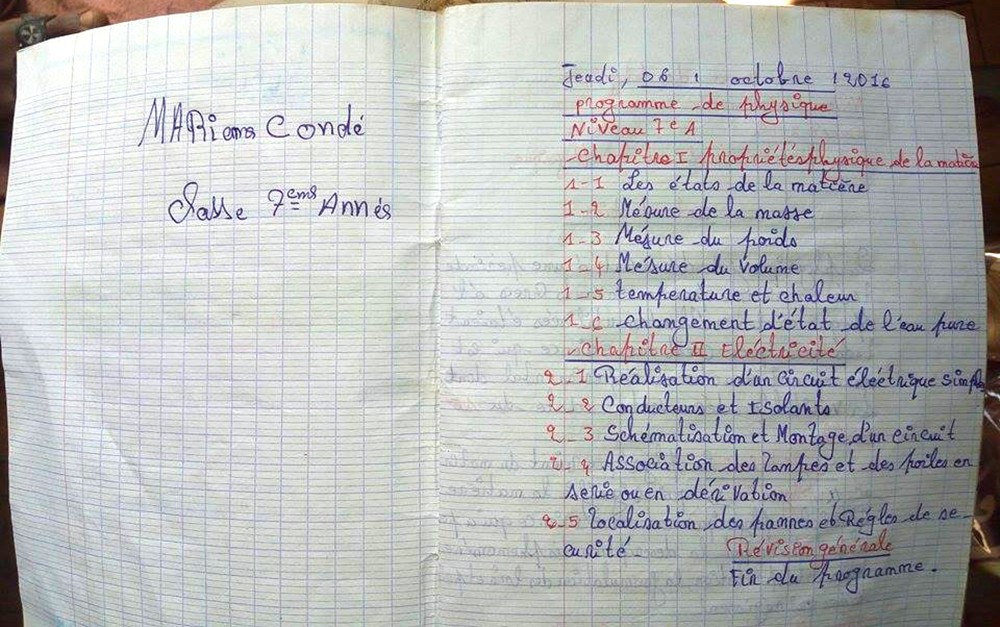 MARiama Condé
Classe 7ème Annés
Jeudi, 06 / octobre / 2016
programme de physique
Niveau 7e A
Chapitre I propriétés physique de la matière
1-1 Les états de la matière
1-2 Mésure de la masse
1-3 Mésure du poids
1-4 Mésure du Volume
1-5 température et chaleur
1-6 changement d'état de l'eau pure
Chapitre II Eléctricité
2-1 Réalisation d'un circuit éléctrique simple
2-2 Conducteurs et Isolants
2-3 Schématisation et Montage d'un circuit
2-4 Association des lampes et des poiles en
serie ou en dérivation
2-5 localisation des pannes et Régles de se-
curité Révision générale
Fin du programme.